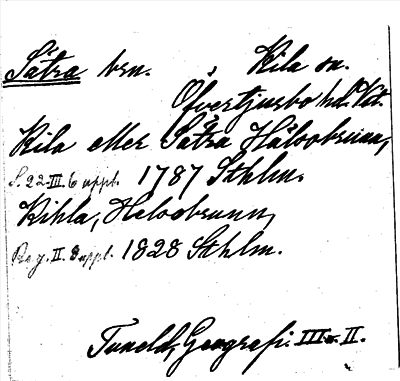 Sätra brn. , Kila sn.
Öfvertjurbo hd. Vst.
Kila eller Sätra Hälsobrunn,
S. 22. III. 6 uppl. 1787 Sthlm.
Kihla, Helsobrunn,
II. 8 uppl. 1828 Sthlm.
Tuneld, Geografi. III o. II.